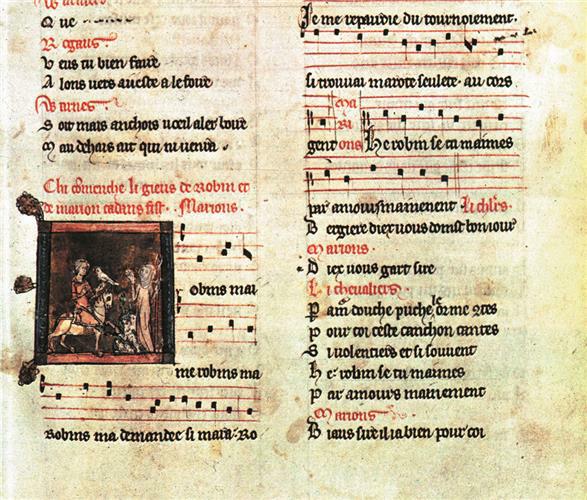 Q ue
Regaus.
V eus tu bien faire
A lons vers aucste a le foire
Warnes
S oit mais anchois vœil aler boire
M au dehais ait qui ni venra.
Chi comenche li gieus de Robin et
de marion cadans fist. Marions.
obins mai
me robins ma
Robins ma demandee si mara. Ro
Je me repairoie du tournoiement.
si trouvai marote seulete. au cors
MA
RI
gent ons He robin se tu maimes
par amours mainenent. Li chlrs.
B ergiere diex vous doinst bon iour
Marions.
D iex vous gart sire
Li chevaliers.
P am douche puchele or me
P our coi ceste canchon cantes
S i volentiers et si souvent
H e robin se tu maimes
P ar amours mainement
Marions
B iaus sire il i a bien pour coi